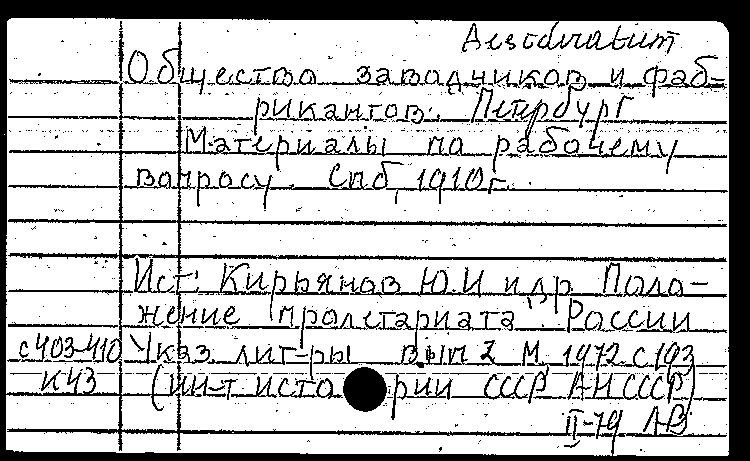 Desideratum
Общество заводчиков и фаб-
рикантов. Петербург
Материалы по рабочему
вопросу. Спб, 1910г.
Ист: Кирьянов Ю.И и др Поло-
жение пролетариата России
с403-410 Указ. лит-ры вып 2 М, 1972 с 193
К43 (ин-т исто рии СССР АН СССР)
II-79 ЛВ